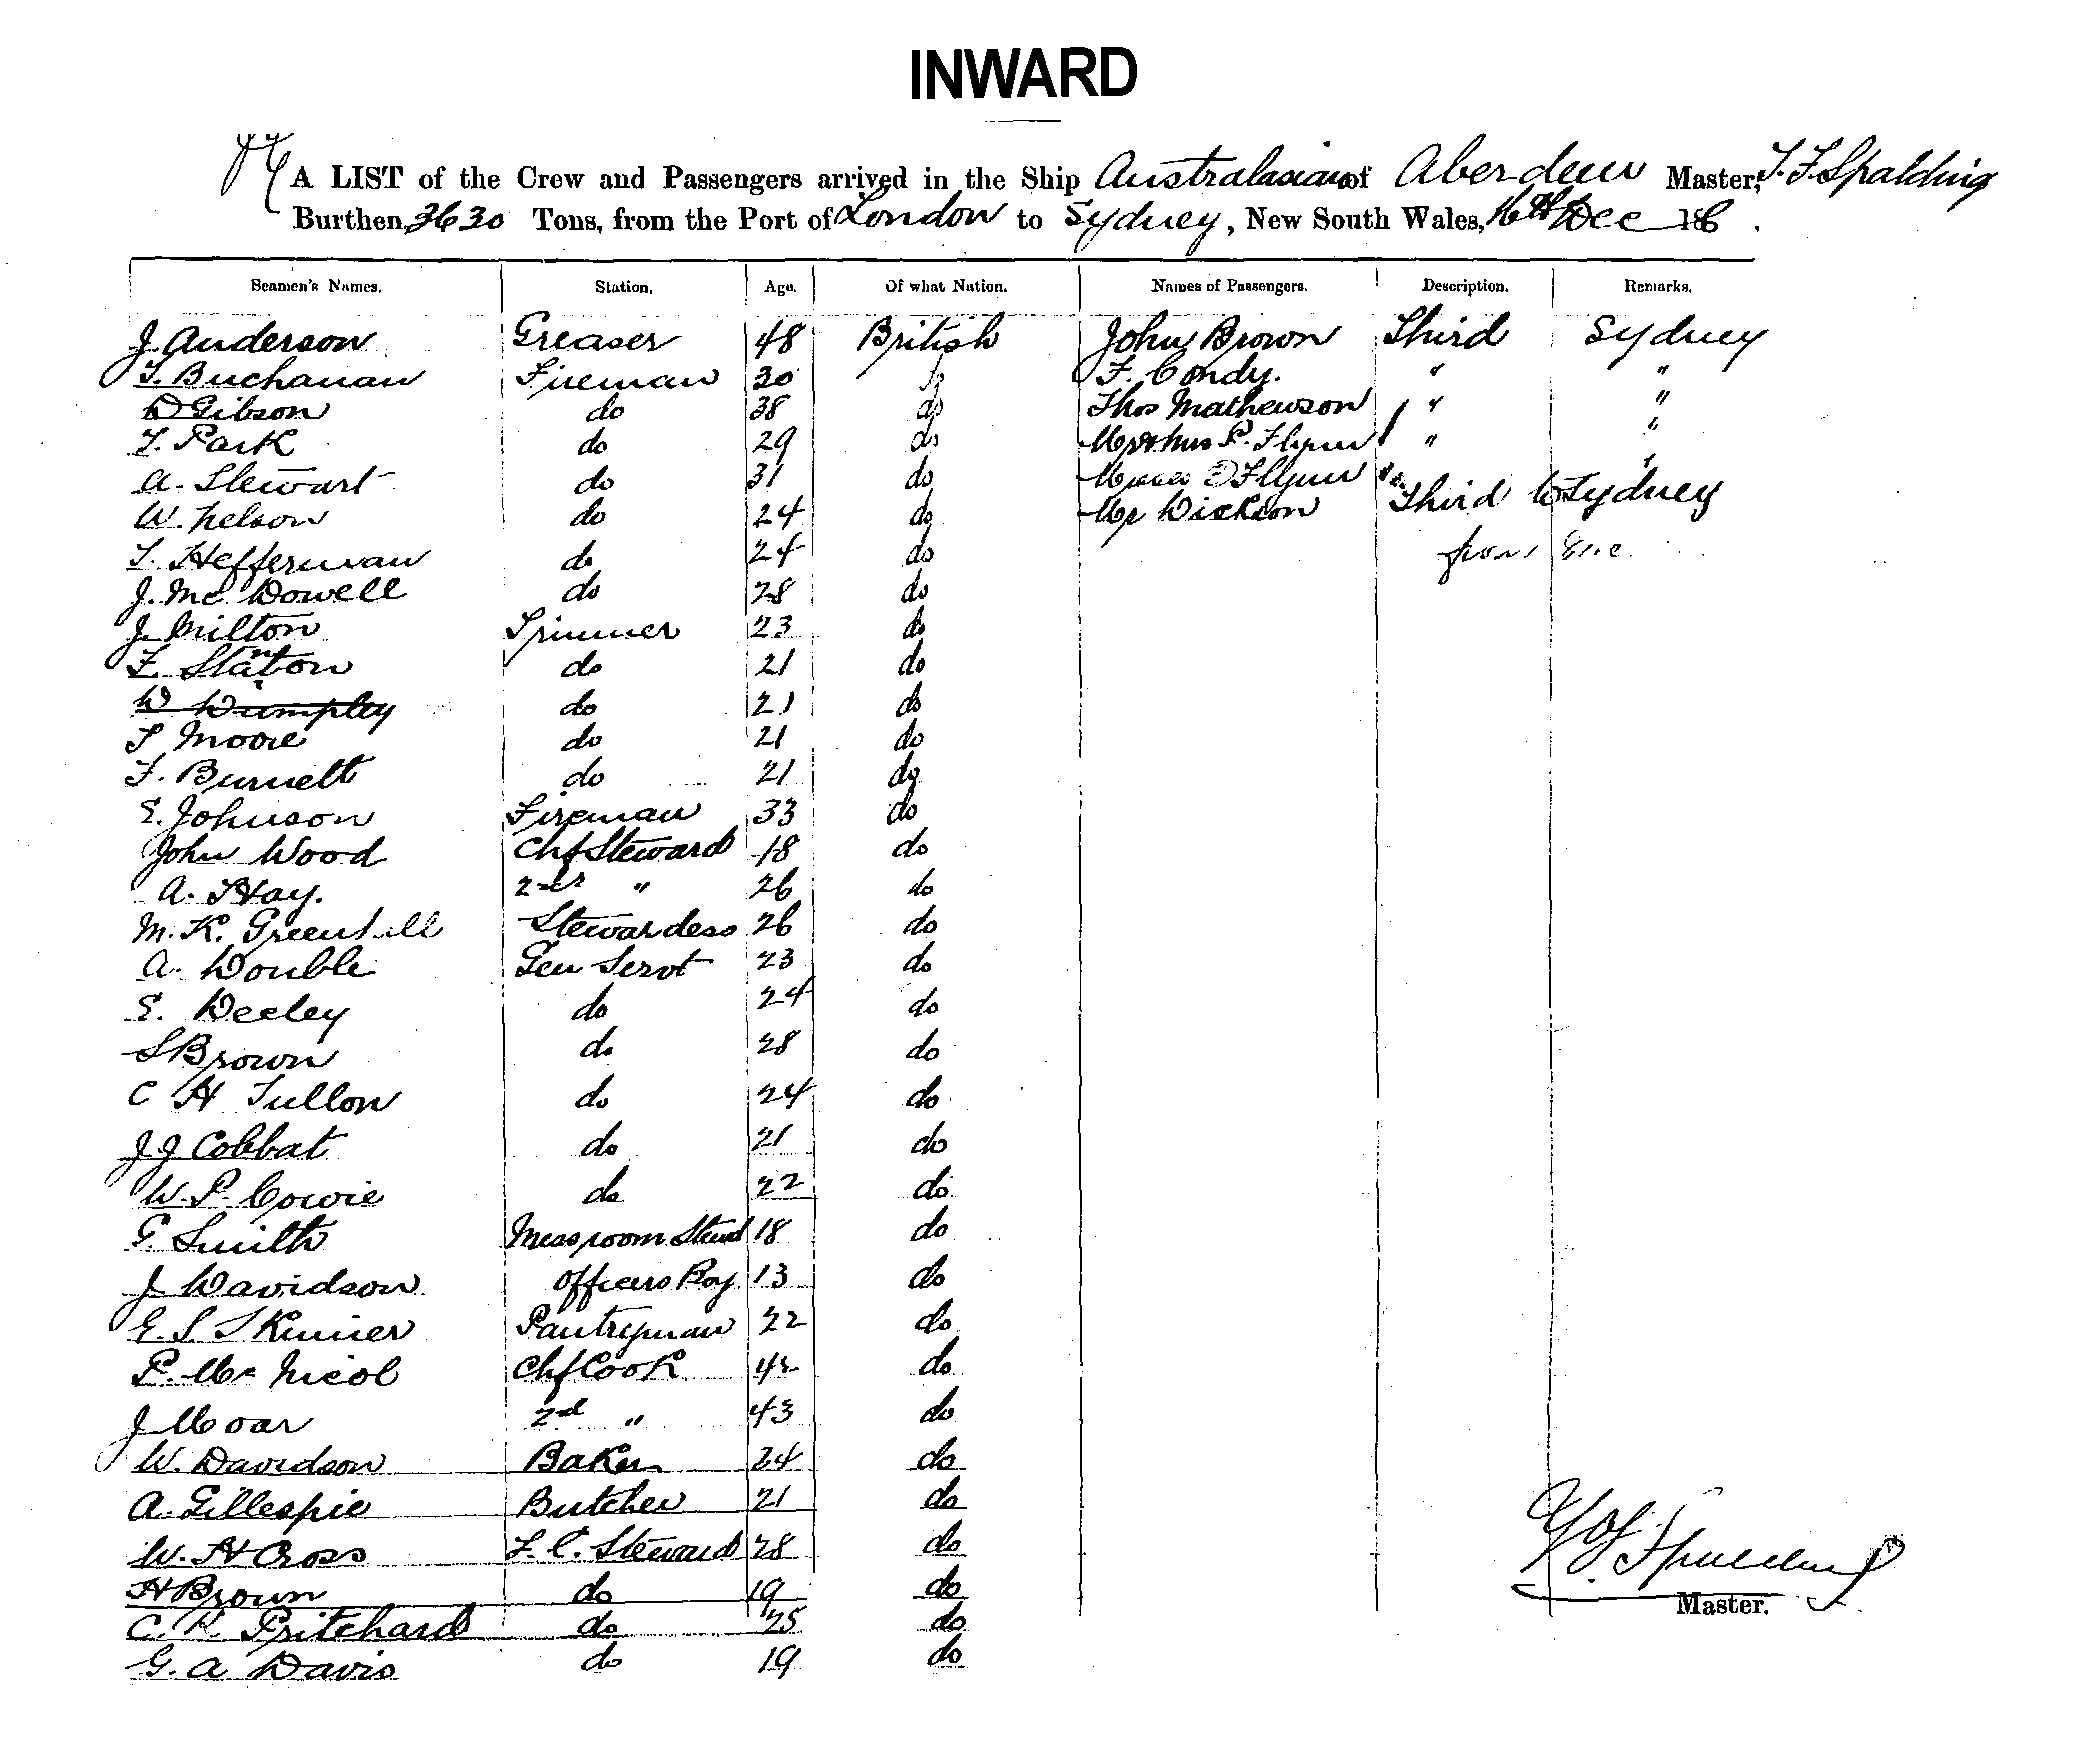 INWARD
A LIST of the Crew and Passengers arrived in the Ship Australasian of Aberdeen Master, T. F. Spalding
Burthen, 3630 Tons, from the Port of London to Sydney, New South Wales, 16th Dec 188
Seamen's Names. Station. Age. Of what Nation. Names of Passengers. Description. Remarks.
J. Anderson Greaser 48 British John Brown Third Sydney
T. Buchanan Fireman 30 do F. Condy. " "
D Gibson do 38 do Thos Mathewson " "
T. Park do 29 do P. Flynn " "
A. Stewart do 31 do Flynn "
W. Nelson do 24 do Mr Dickson Third to Sydney
T. Heffernan do 24 do from
J. Mc Dowell do 28 do
J. Milton Trimmer 23 do
F. Stanton do 21 do
W Dumpley do 21 do
T Moore do 21 do
F. Burnett do 21 do
E. Johnson Fireman 33 do
John Wood Chf Steward 18 do
A. Hay. 2nd " 26 do
M. K. Greenhill Stewardess 26 do
A. Double Gen Servt 23 do
E. Deeley do 24 do
S Brown do 28 do
C H Tullon do 24 do
J J Cobbat do 21 do
W. P. Cowie do 22 do
G. Smith Messroom Stewd 18 do
J Davidson Officers Boy 13 do
G. S. Skinner Pantryman 22 do
P. Mc Nicol Chf Cook 42 do
J Moar 2nd " 43 do
W. Davidson Baker 24 do
A. Gillespie Butcher 21 do
W. H Cross F. C. Steward 28 do
H Brown do 19 do
Spalding
Master.
C. R. Pritchard do 25 do
G. A Davis do 19 do